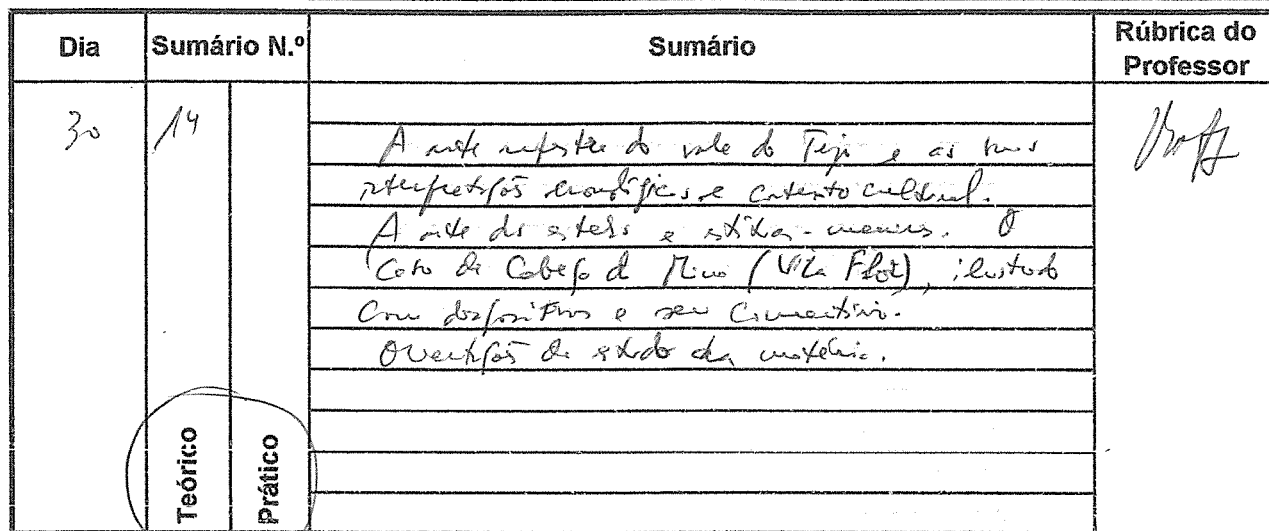 Dia Sumário N.º Sumário Rúbrica do Professor
30 14
A arte rupestre do vale do Tejo e as suas
interpretações cronológicas e contexto cultural.
A arte das estelas e estátuas-menires. O
Caso de Cabeço da Mina (Vila Flor), ilustrado
com diapositivos e seu comentário.
Orientações de estudo da matéria.
Teórico
Prático